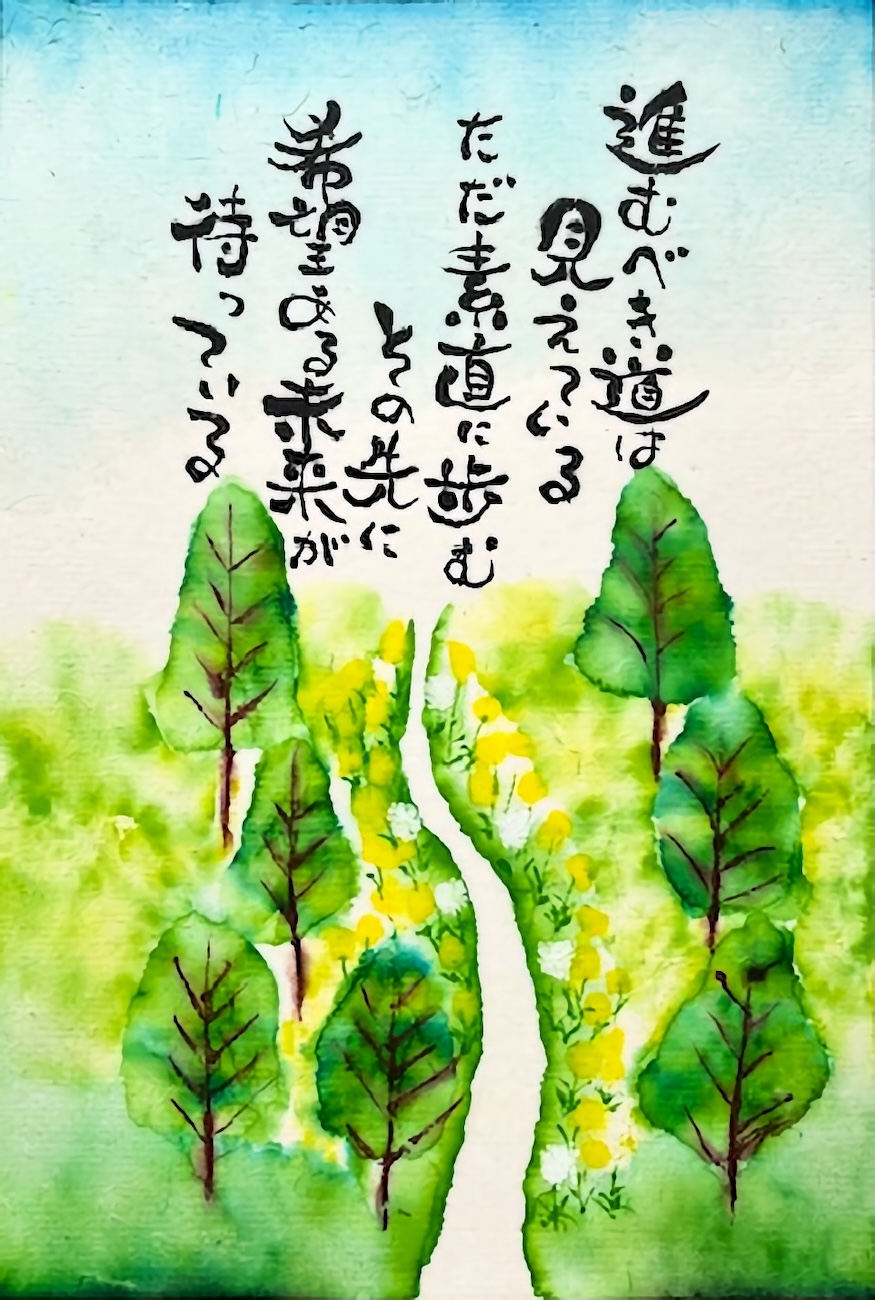 進むべき道は
見えている
ただ素直に歩む
その先に
希望ある未来が
待っている